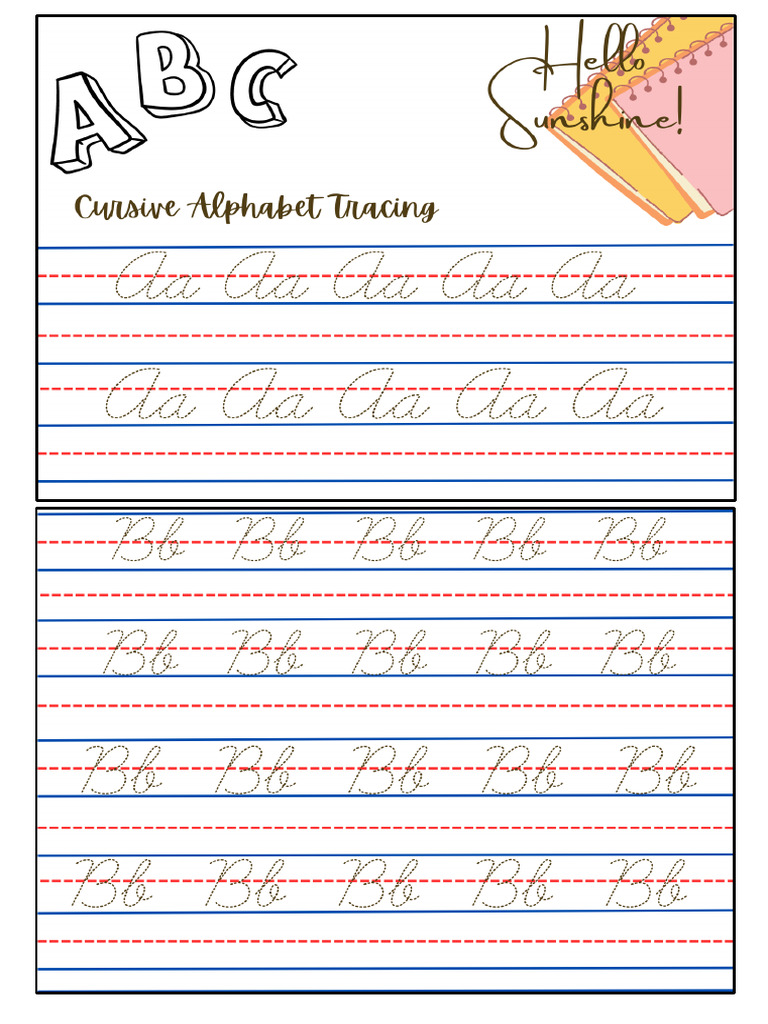 ABC
Hello
Sunshine!
Cursive Alphabet Tracing
Aa Aa Aa Aa Aa
Aa Aa Aa Aa Aa
Bb Bb Bb Bb Bb
Bb Bb Bb Bb Bb
Bb Bb Bb Bb Bb
Bb Bb Bb Bb Bb